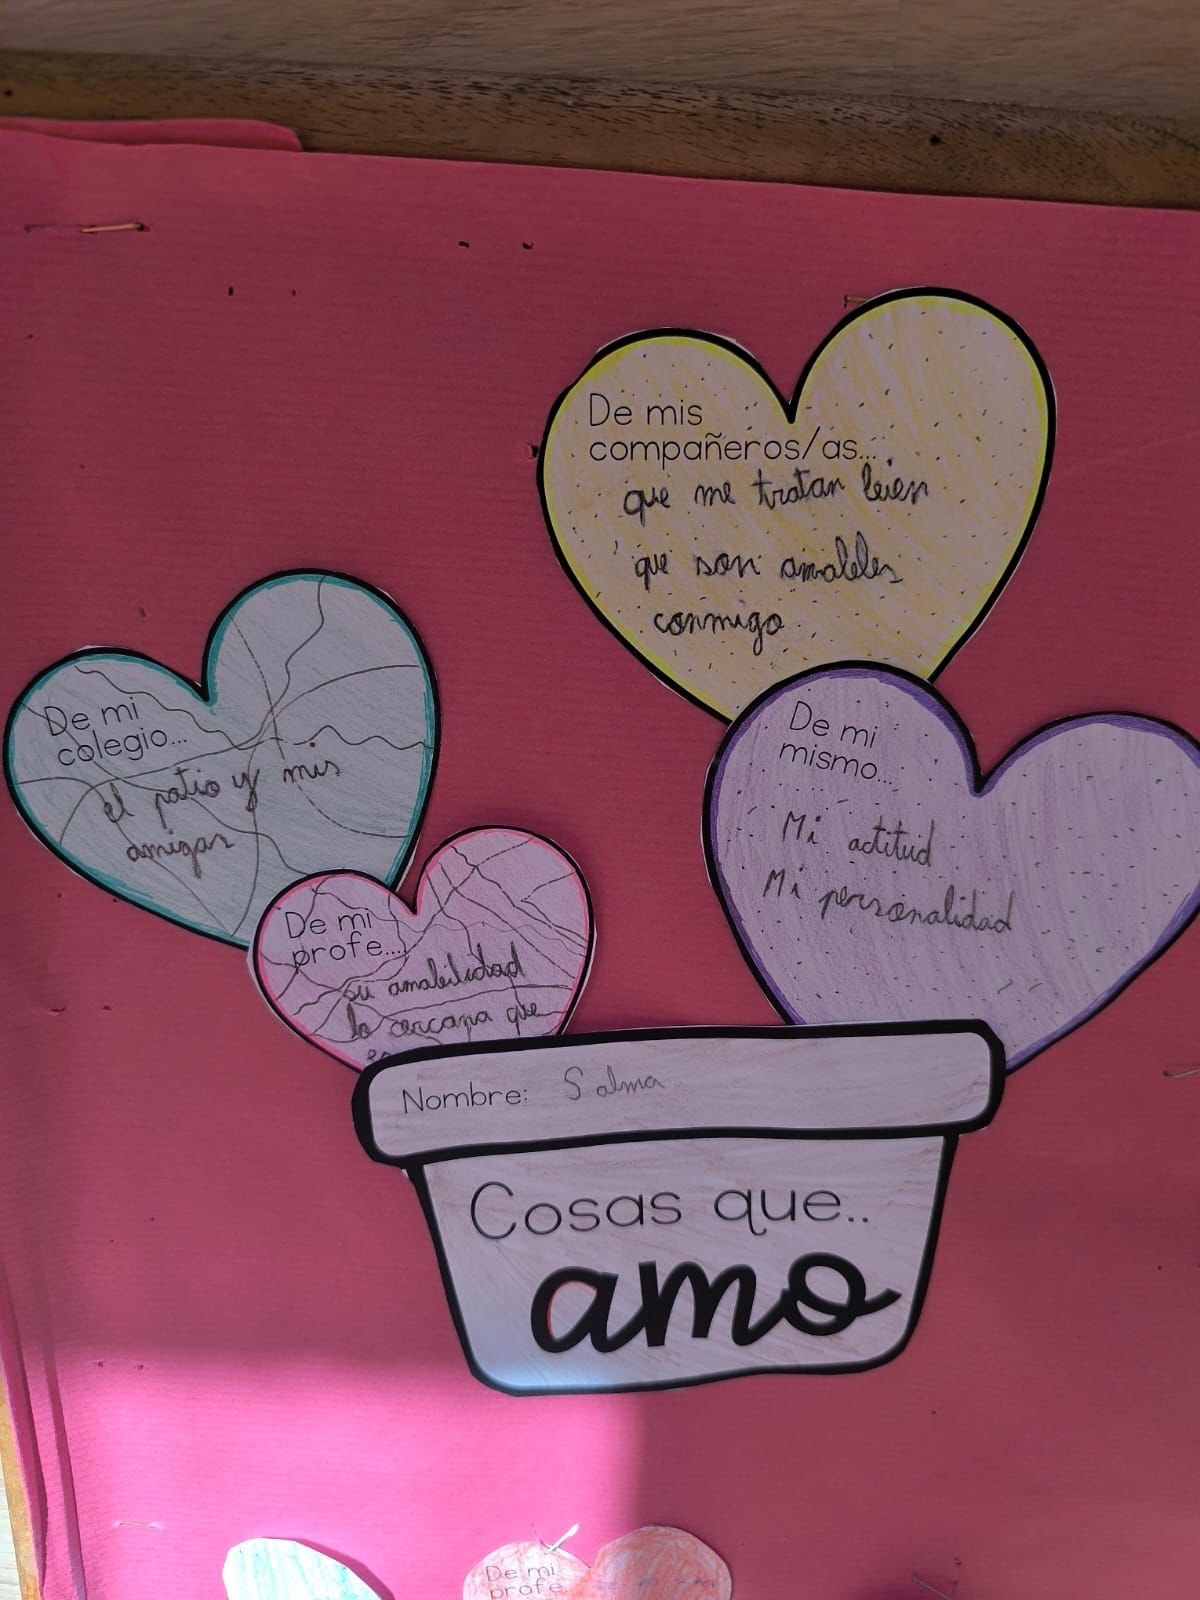 De mis
compañeros/as...
que me tratan bien
que son amables
conmigo
De mi
colegio...
el patio y mis
amigas
De mi
mismo...
Mi actitud
Mi personalidad
De mi
profe...
su amabilidad
lo cercana que
es
Nombre: Salma
Cosas que..
amo
De mi
profe